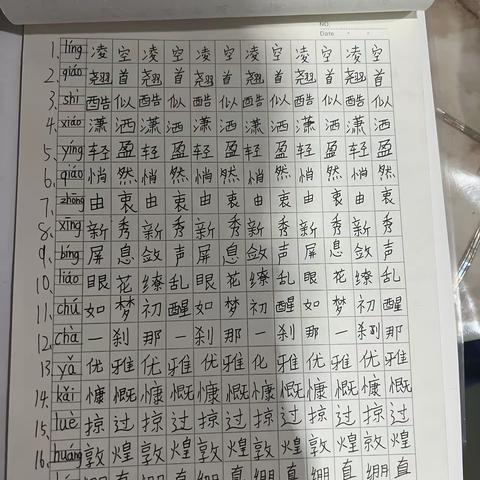 NO.
Date
1. líng 凌空凌空凌空凌空凌空凌空
2. qiáo 翘首翘首翘首翘首翘首翘首
3. shì 酷似酷似酷似酷似酷似酷似
4. xiāo 潇洒潇洒潇洒潇洒潇洒潇洒
5. yíng 轻盈轻盈轻盈轻盈轻盈轻盈
6. qiāo 悄然悄然悄然悄然悄然悄然
7. zhōng 由衷由衷由衷由衷由衷由衷
8. xīng 新秀新秀新秀新秀新秀新秀
9. bǐng 屏息敛声屏息敛声屏息敛声
10. liáo 眼花缭乱眼花缭乱眼花缭乱
11. chú 如梦初醒如梦初醒如梦初醒
12. chà 一刹那一刹那一刹那一刹那
13. yǎ 优雅优雅优雅优雅优雅优雅
14. kǎi 慷慨慷慨慷慨慷慨慷慨慷慨
15. luè 掠过掠过掠过掠过掠过掠过
16. huáng 敦煌敦煌敦煌敦煌敦煌敦煌